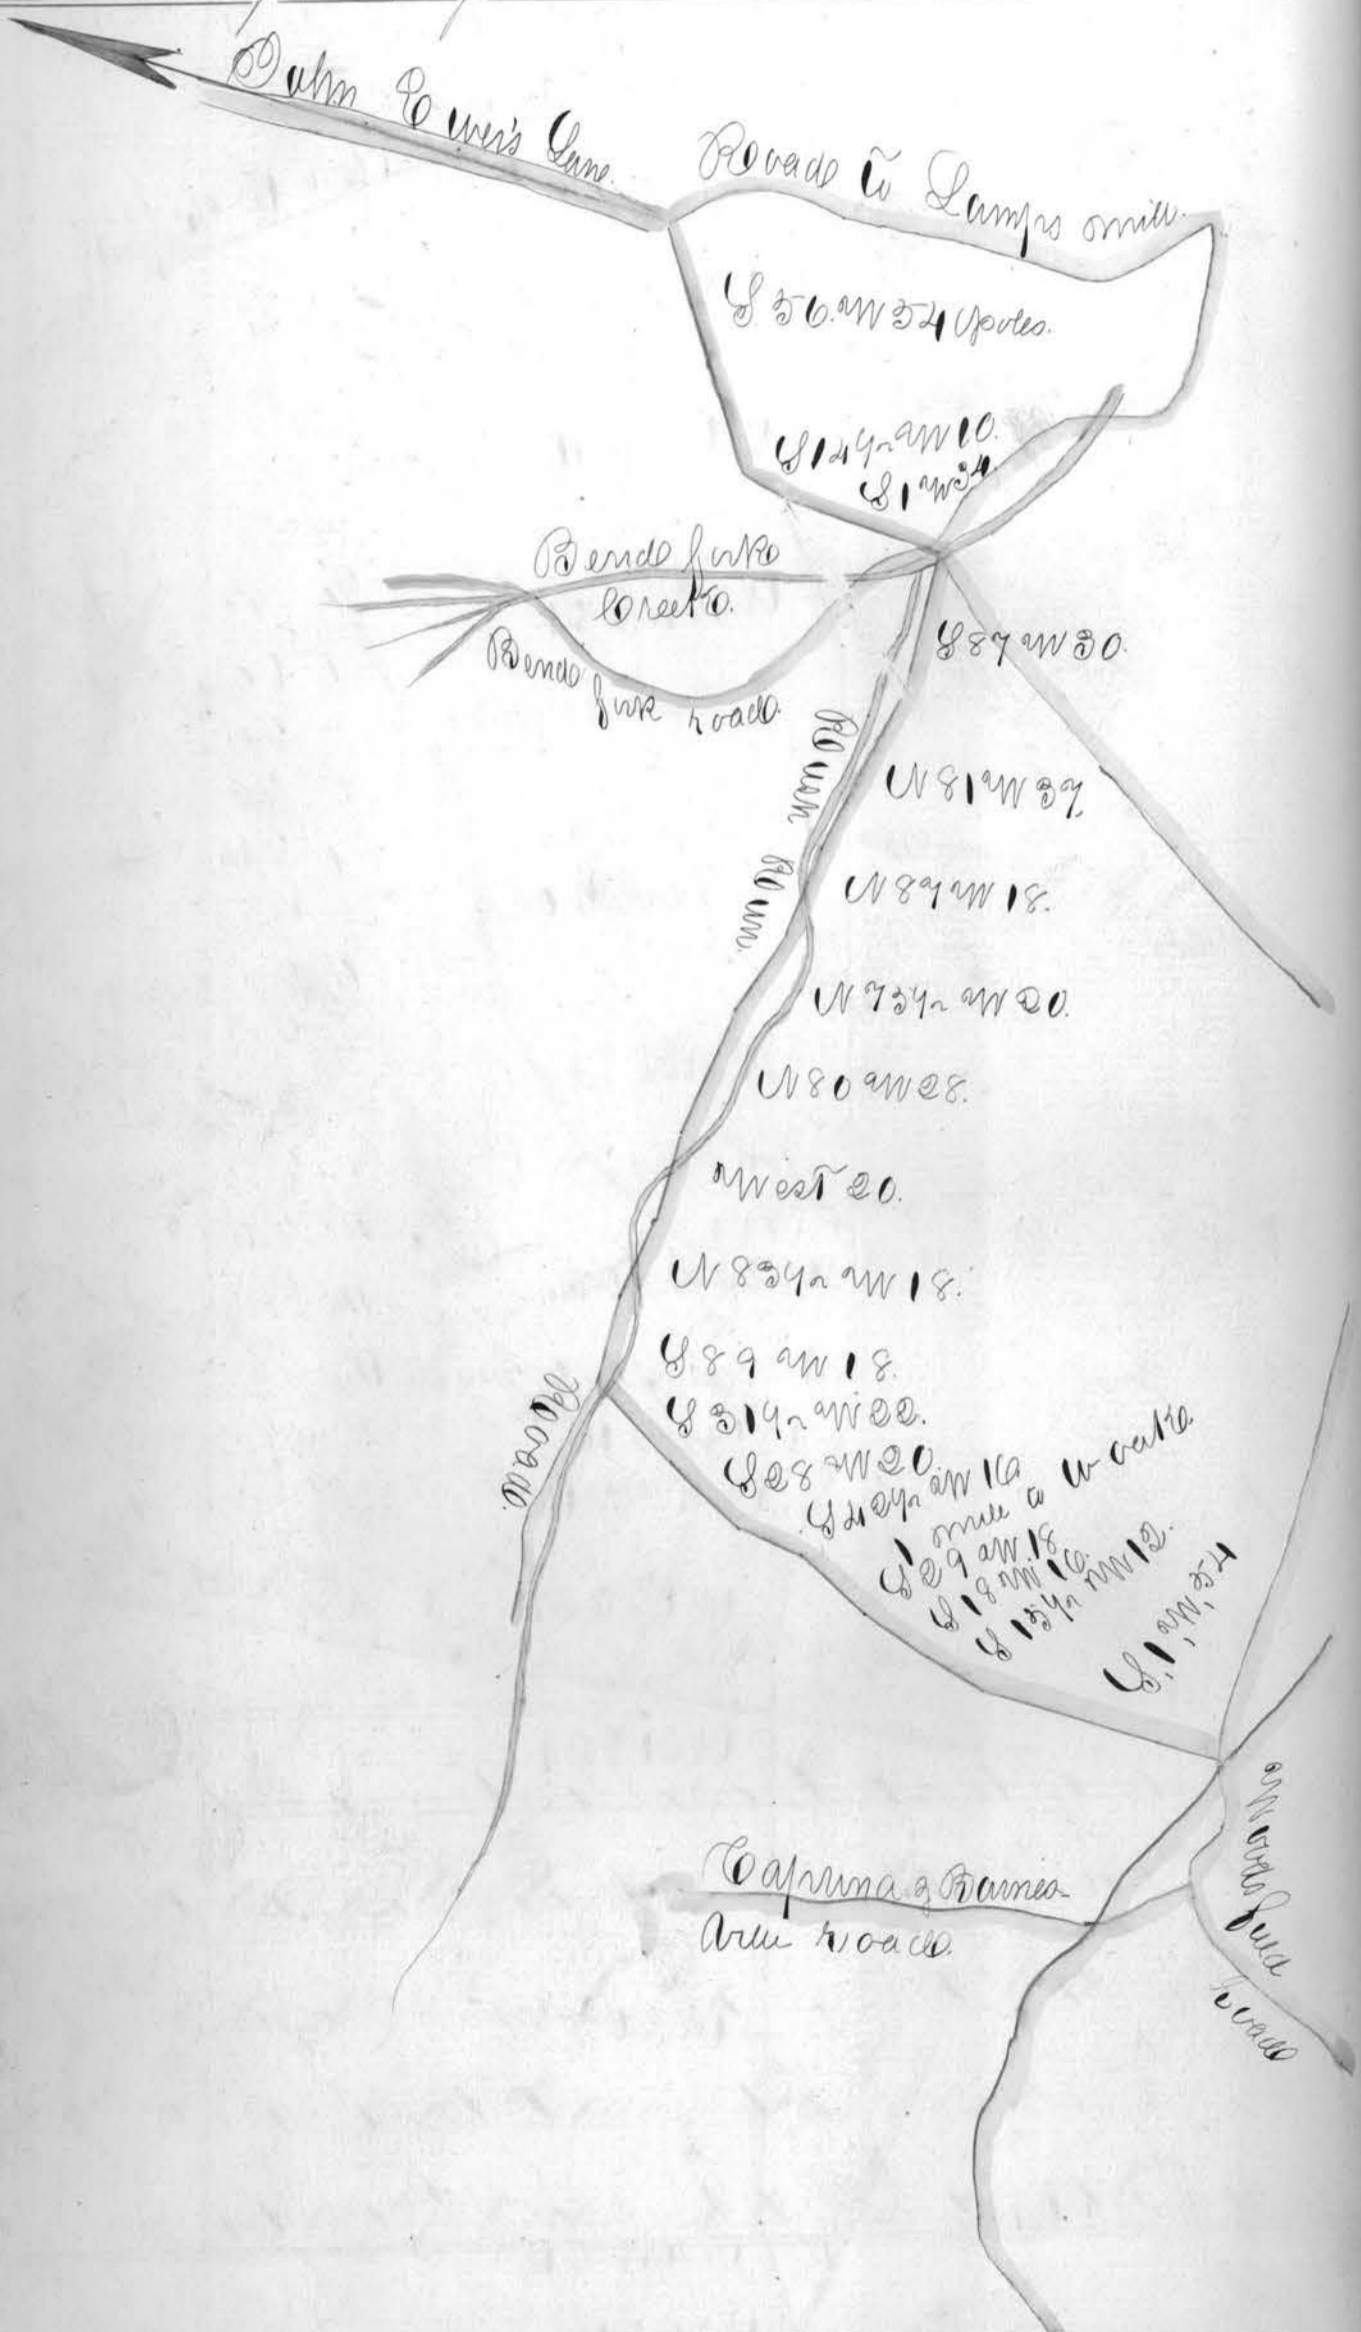 John Ewers Lane.
Road to Lamps mill.
S. 56. W 54 poles.
S 14 1/2 W 10.
S 1 W 34.
Bend fork
Creek.
Bend fork road.
S 87 W 30.
Run.
N 81 W 37,
N 87 W 18.
N 73 1/2 W 20.
N 80 W 28.
West 20.
N 83 1/2 W 18.
S. 89 W 18.
S 31 1/2 W 22.
S 28 W 20.
S 42 1/2 W 16
1 mile to
S 29 W. 18
S 18 W 16.
S 15 1/2 W 12.
S, 1, W, 54
Road.
Captina & Barnes-
ville road.
Woodsfield
road